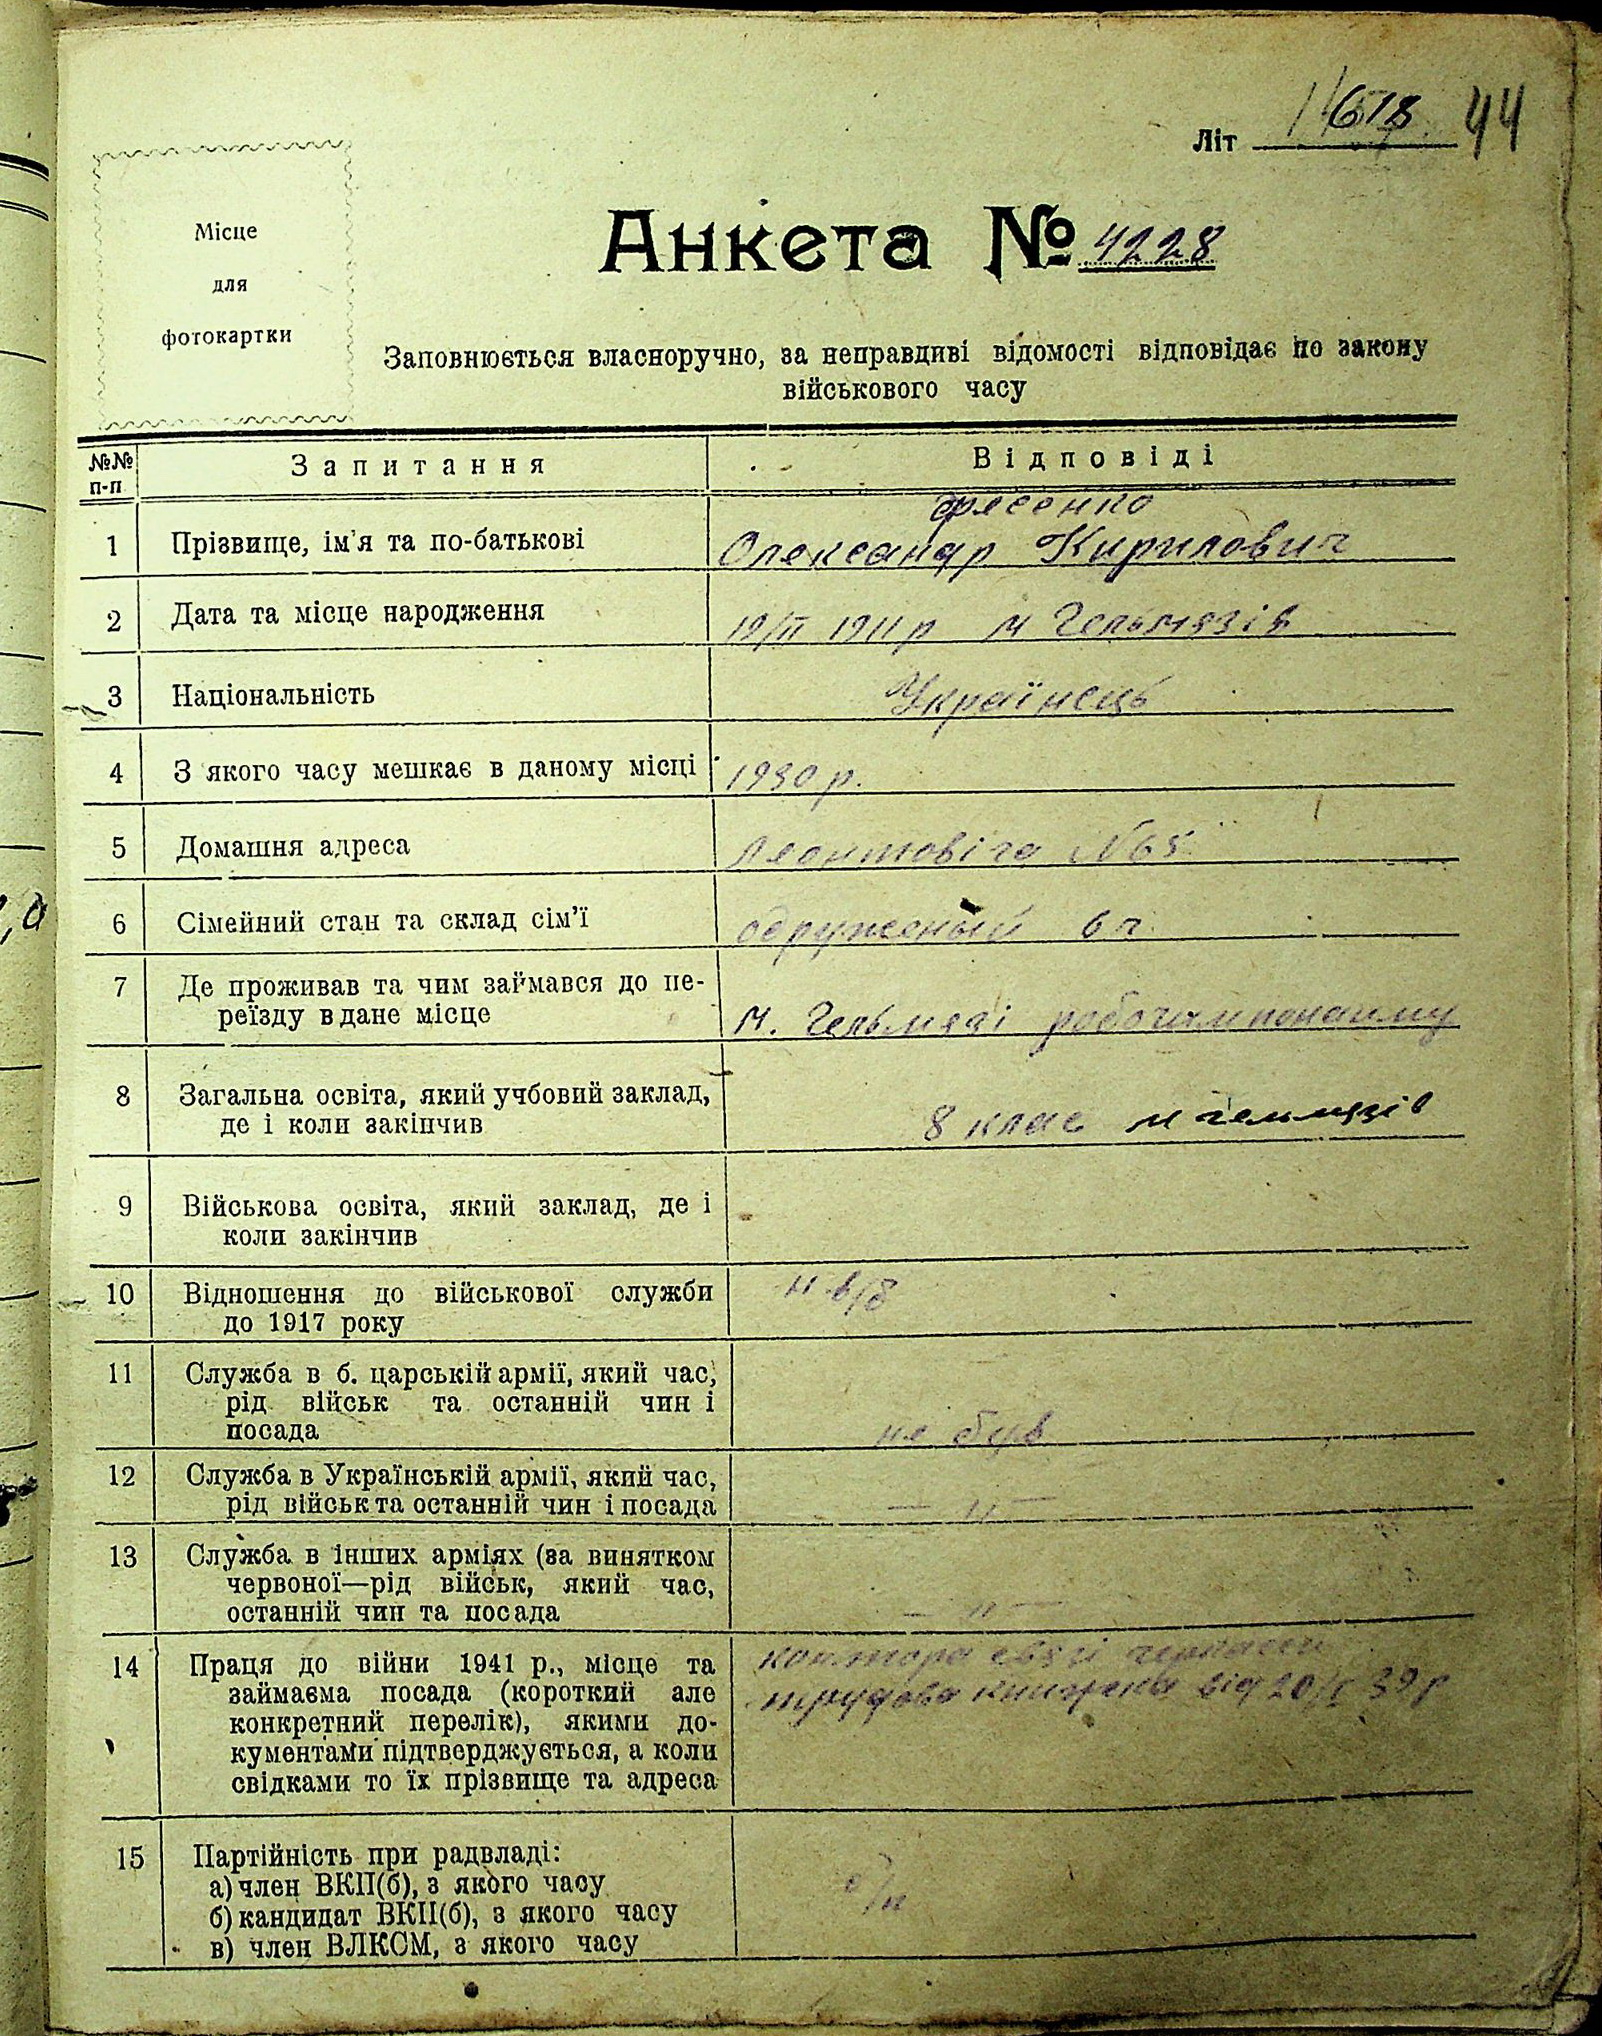 Літ 1618 44
Місце
для
фотокартки
Анкета № 4228
Заповнюється власноручно, за неправдиві відомості відповідає по закону
військового часу
№№ п-п Запитання Відповіді
1 Прізвище, ім'я та по-батькові Олександр Кирилович
2 Дата та місце народження 19/II 1911 р м Гельмязів
3 Національність Українець
4 З якого часу мешкає в даному місці 1930 р.
5 Домашня адреса Леонтовіча N 65
6 Сімейний стан та склад сім'ї одруженый 6 ч
7 Де проживав та чим займався до пе-
реїзду в дане місце м. Гельмязі робочим
8 Загальна освіта, який учбовий заклад,
де і коли закінчив 8 клас м гельмязів
9 Військова освіта, який заклад, де і
коли закінчив
10 Відношення до військової служби н в/б
до 1917 року
11 Служба в б. царській армії, який час,
рід військ та останній чин і
посада не був
12 Служба в Українській армії, який час,
рід військ та останній чин і посада — " —
13 Служба в інших арміях (за винятком
червоної—рід військ, який час,
останній чин та посада — " —
14 Праця до війни 1941 р., місце та контора связі черкаси
займаєма посада (короткий але трудова книжка від 39 р
конкретний перелік), якими до-
кументами підтверджується, а коли
свідками то їх прізвище та адреса
15 Партійність при радвладі:
а) член ВКП(б), з якого часу б/п
б) кандидат ВКП(б), з якого часу
в) член ВЛКСМ, з якого часу